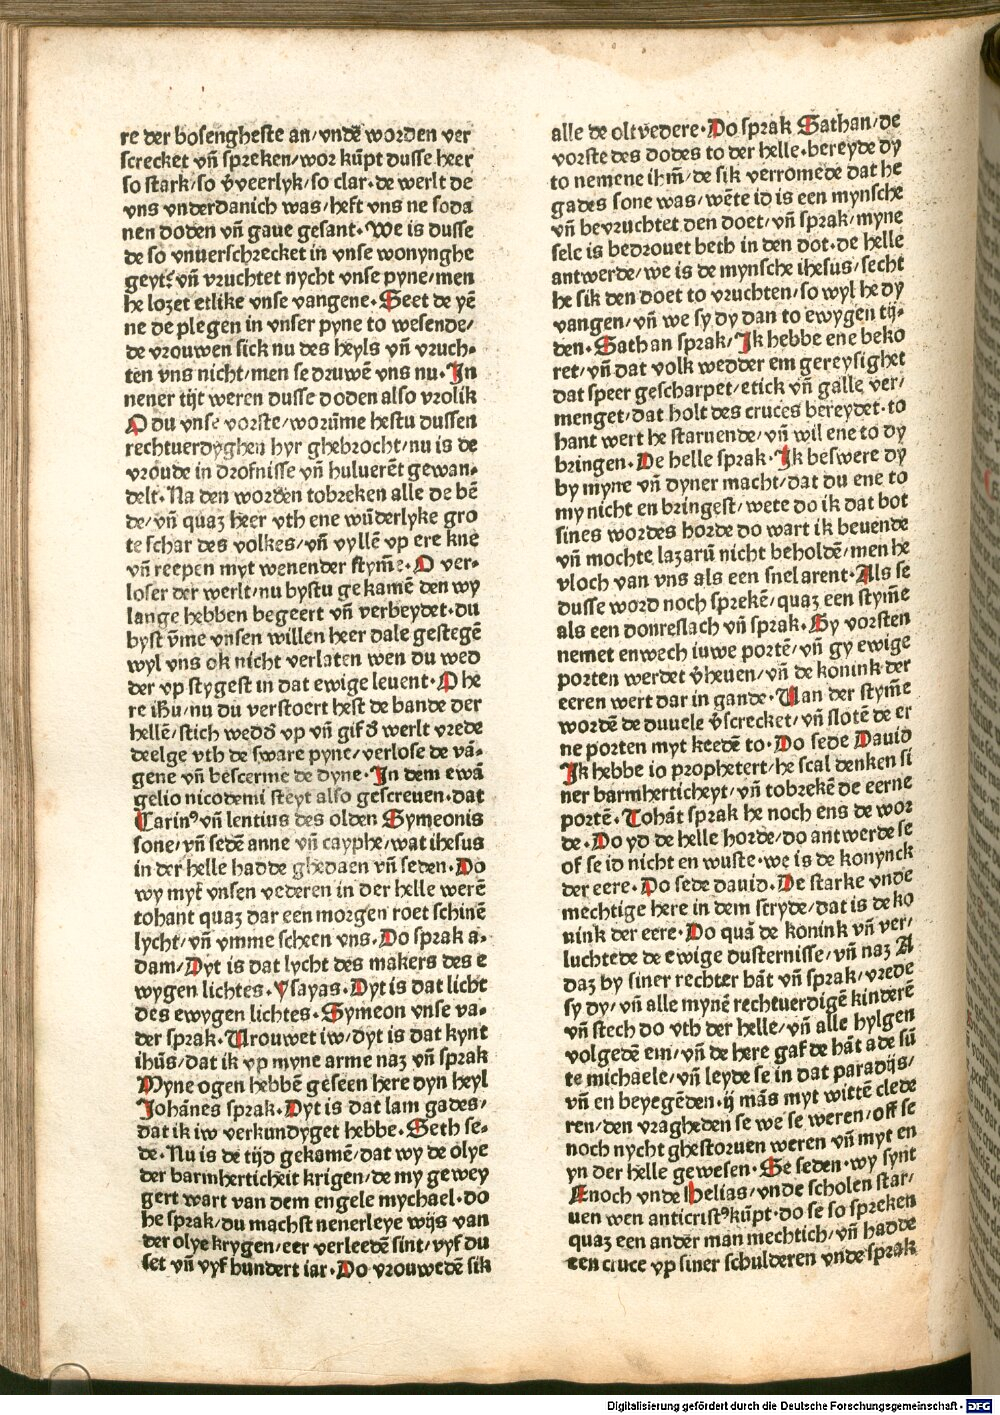 re der bosengheste an/vndē worden ver
screcket vñ spreken/wor kūpt dusse heer
so stark/so v̄veerlyk/so clar·de werlt de
vns vnderdanich was/heft vns ne soda
nen doden vñ gaue gesant·We is dusse
de so vnuerschrecket in vnse wonynghe
geyt? vñ vruchtet nycht vnse pyne/men
he lozet etlike vnse vangene·Seet de yē
ne de plegen in vnser pyne to wesende/
de vrouwen sick nu des heyls vñ vruch-
ten vns nicht/men se druwē vns nu·In
nener tijt weren dusse doden also vrolik
O du vnse vorste/worūme hestu dussen
rechtuerdyghen hyr ghebrocht/nu is de
vroude in drofnisse vñ huluerēt gewan-
delt·Na den worden tobreken alle de bē
de/vñ quaz heer vth ene wūderlyke gro
te schar des volkes/vñ vyllē vp ere kne
vñ reepen myt wenender stym̄e·O ver-
loser der werlt/nu bystu gekamē den wy
lange hebben begeert vñ verbeydet·du
byst v̄me vnsen willen heer dale gestegē
wyl vns ok nicht verlaten wen du wed
der vp stygest in dat ewige leuent·O he
re ihū/nu du verstoert hest de bande der
hellē/stich wedd̄ vp vñ gif d̄ werlt vrede
deelge vth de sware pyne/verlose de vā-
gene vñ bescerme de dyne·In dem ewā
gelio nicodemi steyt also gescreuen·dat
Carinꝰ vñ lentius des olden Symeonis
sone/vñ sedē anne vñ cayphe/wat ihesus
in der helle hadde ghedaen vñ seden·Do
wy myt vnsen vederen in der helle werē
tohant quaz dar een morgen roet schinē
lycht/vñ vmme scheen vns·Do sprak a-
dam/Dyt is dat lycht des makers des e
wygen lichtes·Ysayas·Dyt is dat licht
des ewygen lichtes·Symeon vnse va-
der sprak·Vrouwet iw/dyt is dat kynt
ihūs/dat ik vp myne arme naz vñ sprak
Myne ogen hebbē geseen here dyn heyl
Johānes sprak·Dyt is dat lam gades/
dat ik iw verkundyget hebbe·Seth se-
de·Nu is de tijd gekamē/dat wy de olye
der barmherticheit krigen/de my gewey
gert wart van dem engele mychael·do
he sprak/du machst nenerleye wijs van
der olye krygen/eer verleedē sint/vyf du
set vñ vyf hundert iar·Do vrouwedē sik
alle de oltvedere·Do sprak Sathan/de
vorste des dodes to der helle·bereyde dy
to nemene ihm̄/de sik verromede dat he
gades sone was/wēte id is een mynsche
vñ bevruchtet den doet/vñ sprak/myne
sele is bedrouet beth in den dot·de helle
antwerde/we is de mynsche ihesus/secht
he sik den doet to vruchten/so wyl he dy
vangen/vñ we sy dy dan to ewygen tij-
den·Sathan sprak/Ik hebbe ene beko
ret/vñ dat volk wedder em gereysighet
dat speer gescharpet/etick vñ galle ver/
menget/dat holt des cruces bereydet·to
hant wert he staruende/vñ wil ene to dy
bringen·De helle sprak·Ik beswere dy
by myne vñ dyner macht/dat du ene to
my nicht en bringest/wete do ik dat bot
sines wordes horde do wart ik beuende
vñ mochte lazarū nicht beholdē/men he
vloch van vns als een snel arent·Als se
dusse word noch sprekē/quaz een stym̄e
als een donreslach vñ sprak·Gy vorsten
nemet enwech iuwe portē/vñ gy ewige
porten werdet v̄heuen/vñ de konink der
eeren wert dar in gande·Van der stym̄e
wordē de duuele v̄screcket/vñ slotē de er
ne porten myt keedē to·Do sede Dauid
Ik hebbe io prophetert/he scal denken si
ner barmherticheyt/vñ tobrekē de eerne
portē·Tohāt sprak he noch ens de wor
de·Do yd de helle horde/do antwerde se
of se id nicht en wuste·we is de konynck
der eere·Do sede dauid·De starke vnde
mechtige here in dem stryde/dat is de ko
nink der eere·Do quā de konink vñ ver/
luchtede de ewige dusternisse/vñ naz A
daz by siner rechter hāt vñ sprak/vrede
sy dy/vñ alle mynē rechtuerdigē kinderē
vñ stech do vth der helle/vñ alle hylgen
volgedē em/vñ de here gaf de hāt ade sū
te michaele/vñ leyde se in dat paradijs/
vñ en beyegēden·ij mās myt wittē clede
ren/den vragheden se we se weren/off se
noch nycht ghestoruen weren vñ myt en
yn der helle gewesen·Se seden·wy synt
Enoch vnde Helias/vnde scholen star/
uen wen anticristꝰ kūpt·do se so spreken
quaz een ander man mechtich/vñ hadde
een cruce vp siner schulderen vnde sprak
Digitalisierung gefördert durch die Deutsche Forschungsgemeinschaft - DFG